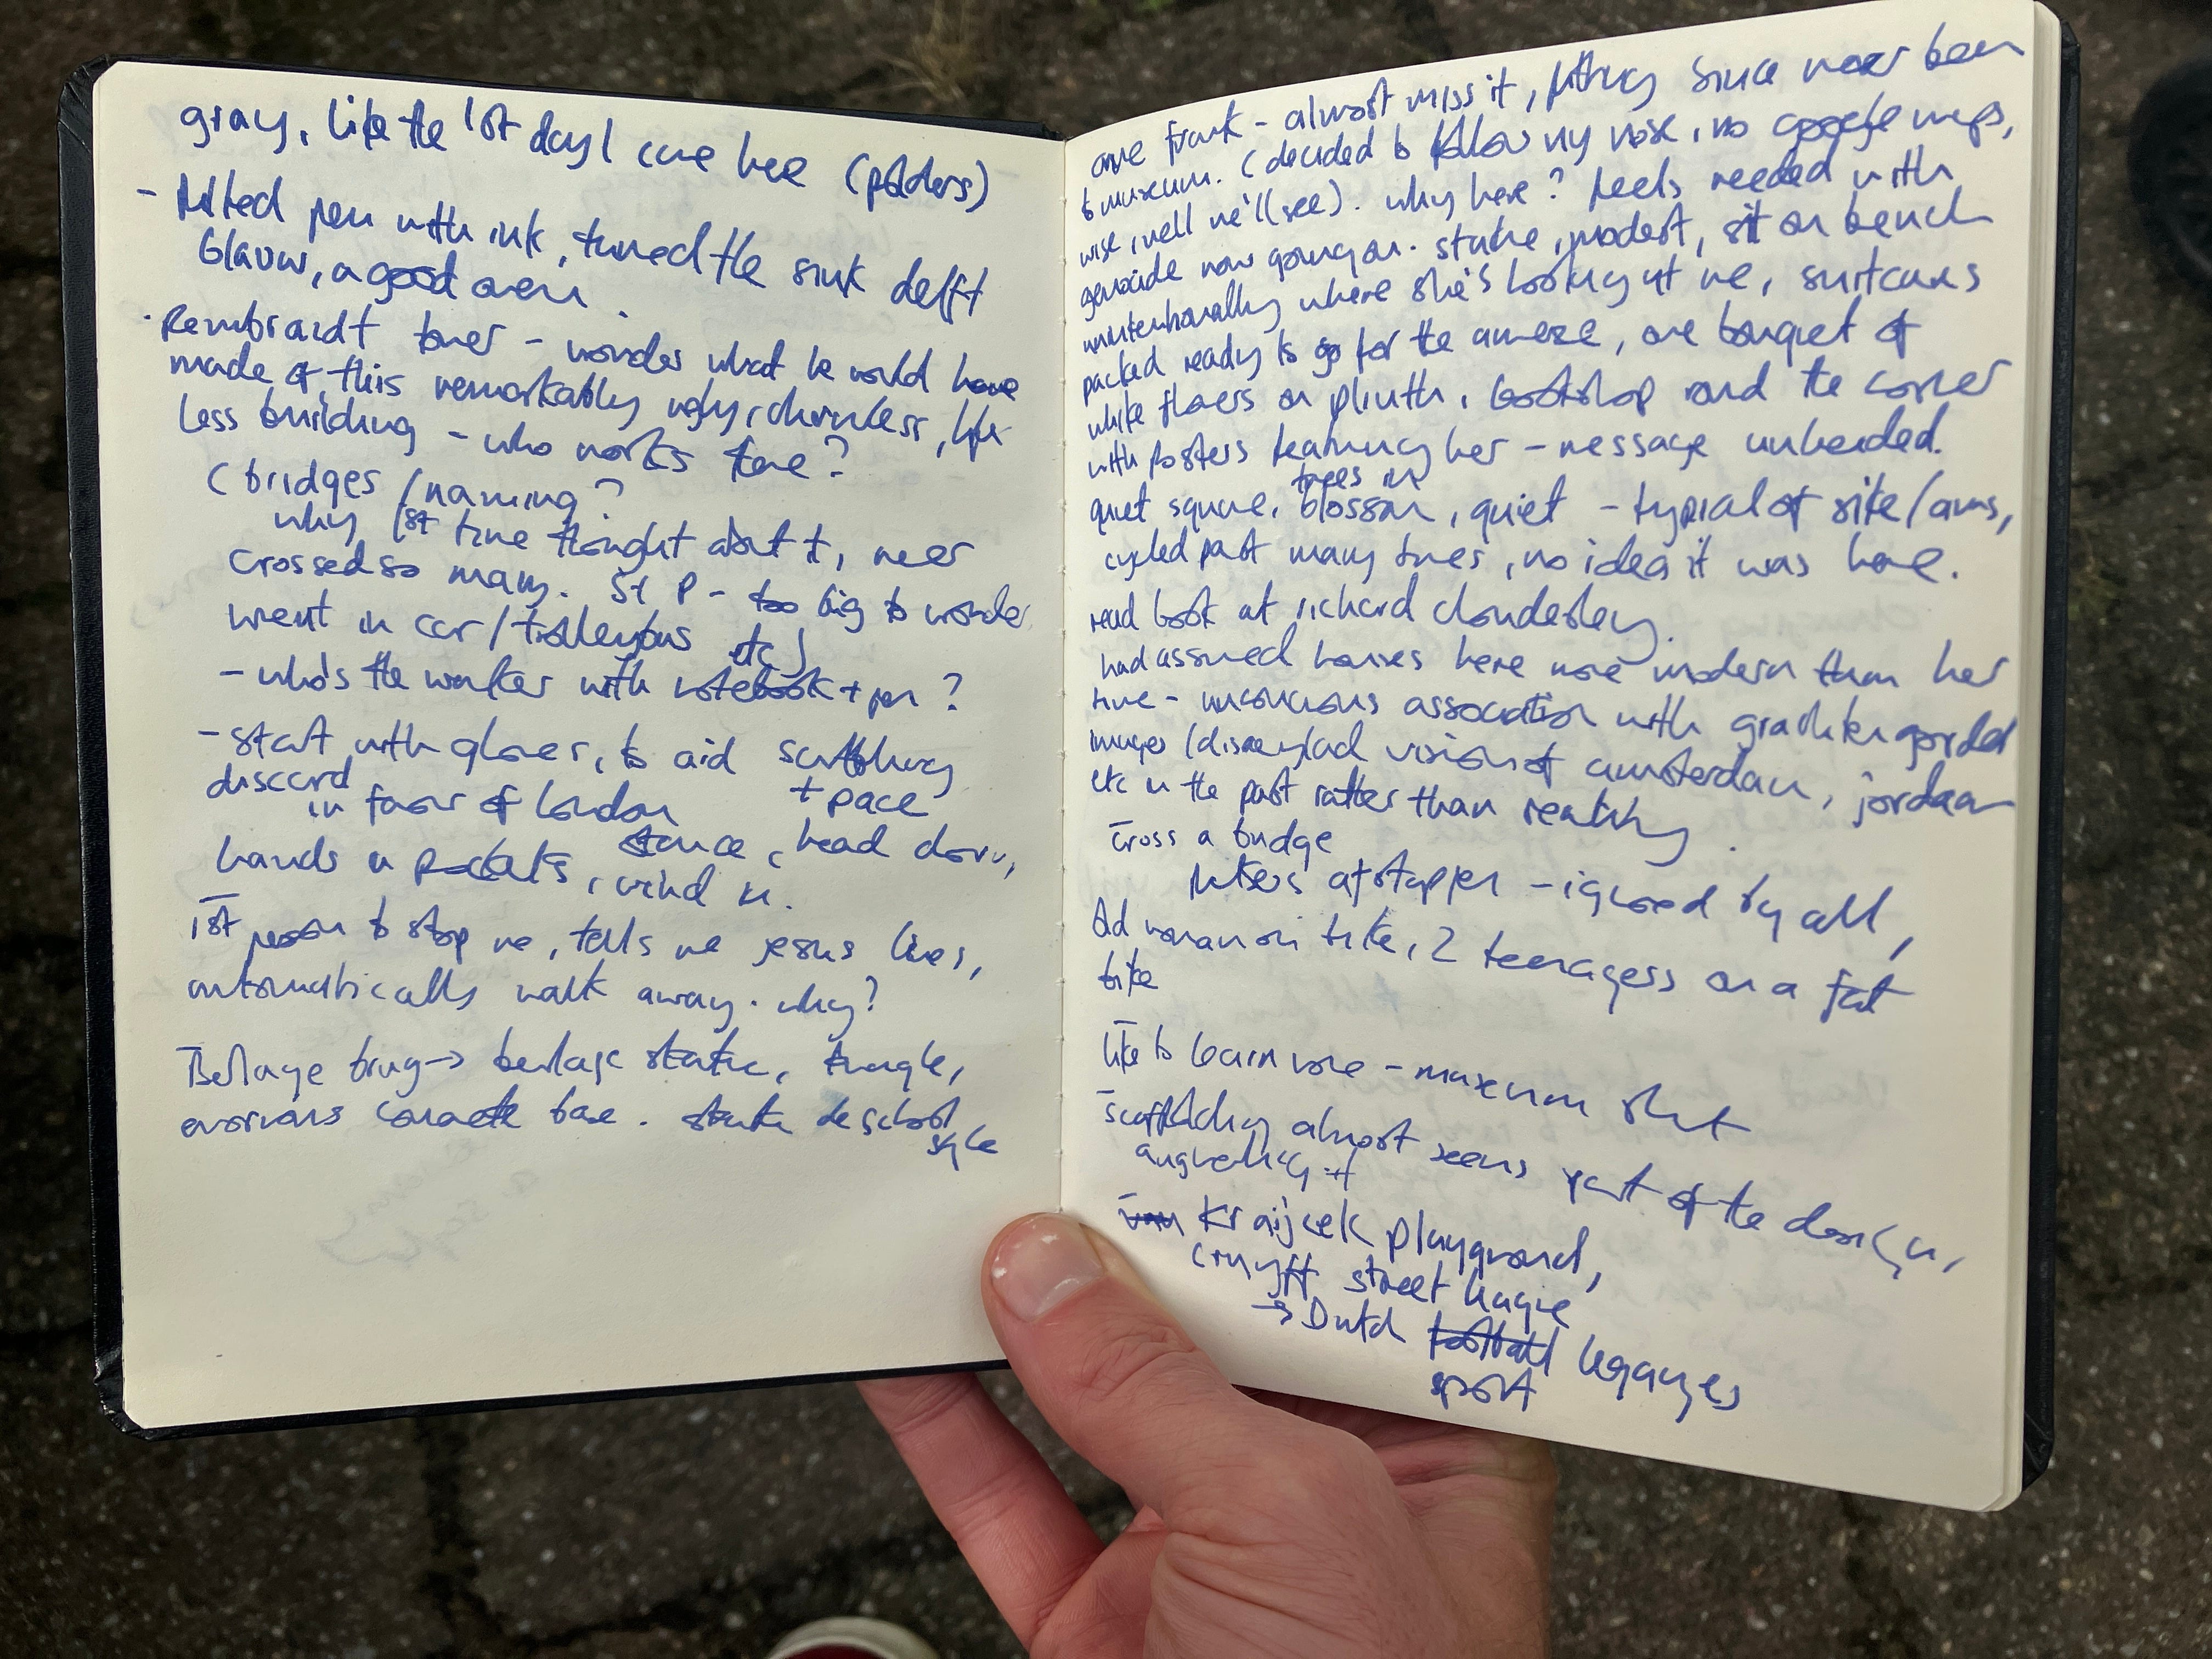 gray, like the 1st day I came here (polders)
- filled pen with ink, turned the sink delft
blauw, a good omen.
- Rembrandt tower - wonder what he would have
made of this remarkably ugly, charmless, life
less building - who works there?
(bridges / naming?
why 1st time thought about it, never
crossed so many. St P - too big to wonder
went in car/trolleybus etc)
- who's the walker with notebook + pen?
- start with gloves, to aid scribbling
discard + pace
in favour of london
hands in pockets, stance, head down,
wind in.
- 1st person to stop me, tells me jesus lives,
automatically walk away. why?
- Berlage brug -> berlage statue, triangle,
enormous concrete base. statue de school
style
anne frank - almost miss it, fitting since never been
to museum. (decided to follow my nose, no google maps,
wise, well we'll see). why here? feels needed with
genocide now going on. statue, modest, sit on bench
unintentionally where she's looking at me, suitcases
packed ready to go for the annexe, one bouquet of
white flowers on plinth, bookshop round the corner
with posters featuring her - message unheeded.
trees in
quiet square, blossom, quiet - typical of site/ams,
cycled past many times, no idea it was here.
read book at richard cloudesley.
had assumed houses here more modern than her
time - unconscious association with grachtengordel
images (disneyland vision of amsterdam, jordaan
etc in the past rather than reality.
- cross a bridge
fietsers afstappen - ignored by all,
old woman on bike, 2 teenagers on a fat
bike
- like to learn more - museum shut
- scaffolding almost seems part of the design,
augmenting it
- van Kraijcek playground,
cruyff street league
-> Dutch football legacies
sport